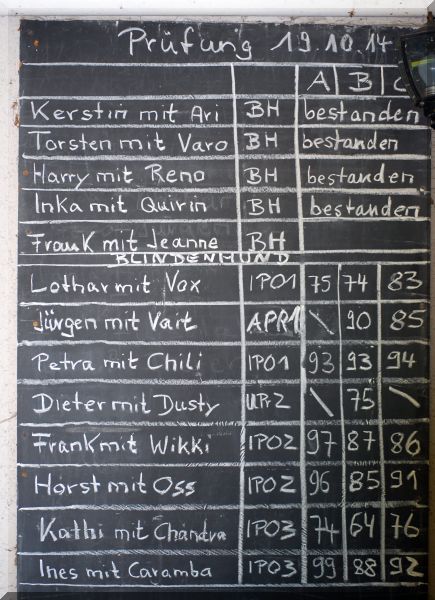 Prüfung 19.10.14
A B C
Kerstin mit Ari BH bestanden
Torsten mit Varo BH bestanden
Harry mit Reno BH bestanden
Inka mit Quirin BH bestanden
Frank mit Jeanne BH
BLINDENHUND
Lothar mit Vox IPO1 75 74 83
Jürgen mit Vait APR1 \ 90 85
Petra mit Chili IPO1 93 93 94
Dieter mit Dusty UPr2 \ 75 \
Frank mit Wikki IPO2 97 87 86
Horst mit Oss IPO2 96 85 91
Kathi mit Chandra IPO3 74 64 76
Ines mit Caramba IPO3 99 88 92